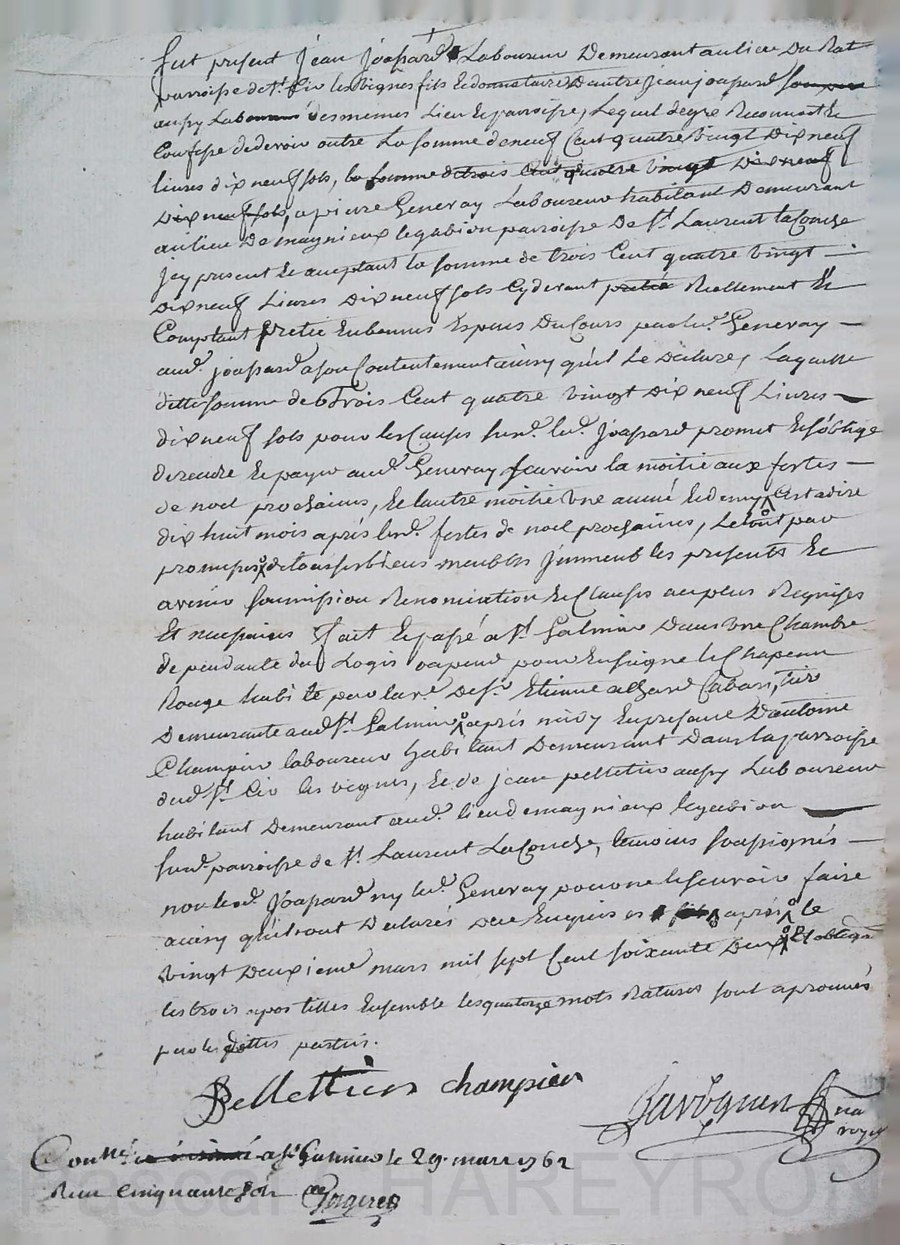 fut present Jean Joapard Laboureur Demeurant au lieu Du Rat
parroisse de st. Cir les vignes fils & donnataire D'autre Jean Joapard
aussy Laboureur desmemes Lieu & parroisse, Lequel degré Reconnoit &
Confesse de devoir outre La somme de neuf Cent quatre vingt Dixneuf
livres dixneuf sols, la somme de trois Cent quatre vingt Dixneuf
Dixneuf sols, a pierre Genevay Laboureur habitant Demeurant
au lieu De magnieux legabion parroisse De St. Laurent la Conche
jcy present & aceptant la somme de trois Cent quatre vingt
Dixneuf Livres Dixneuf sols Cy devant pretée Reellement &
Comptant pretée En bonnes Especes Du Cours par led. Genevay
aud. joapard a son Contentement ainsy qu'il Le Declare, Laquelle
ditte somme de Trois Cent quatre vingt Dixneuf Livres
dixneuf sols pour les Causes susd. led. Joapard promet & s'oblige
de rendre & payer aud. Genevay scavoir la moitié aux festes
de noel prochaines, & l'autre moitié une année & demy Cest a dire
dix huit mois après lesd. festes de noel prochaines, Le tout par
promesse de tous ses biens meubles Jmmeubles presents &
avenir soumission Renonciation & Clauses au plus Requises
Et necessaires fait & passé a St. Galmier Dans une Chambre
dependante du Logis ou pend pour Enseigne le Chapeau
Rouge habité par la ve. De sr. Etienne Cabaretiere
Demeurante aud. St. Galmier après midy En presence D'antoine
Champier laboureur habitant Demeurant Dans la parroisse
dud. St. Cir les vignes, & de jean pelletier aussy Laboureur
habitant Demeurant aud. lieu de magnieux legabion
susd. parroisse de St. Laurent La Conche, temoins soussignés
non led. Joapard ny led. Genevay pour ne le scavoir faire
ainsy qu'ils ont Declaré De ce Enquis après le
vingt deuxieme mars mil sept Cent soixante Deux
les trois apostilles Ensemble les quatorze mots Raturés sont aprouvés
par les dittes parties.
Pellettier champier
na
royal
Conllé a st. Galmier le 29. mars 1762
Reçu cinquante